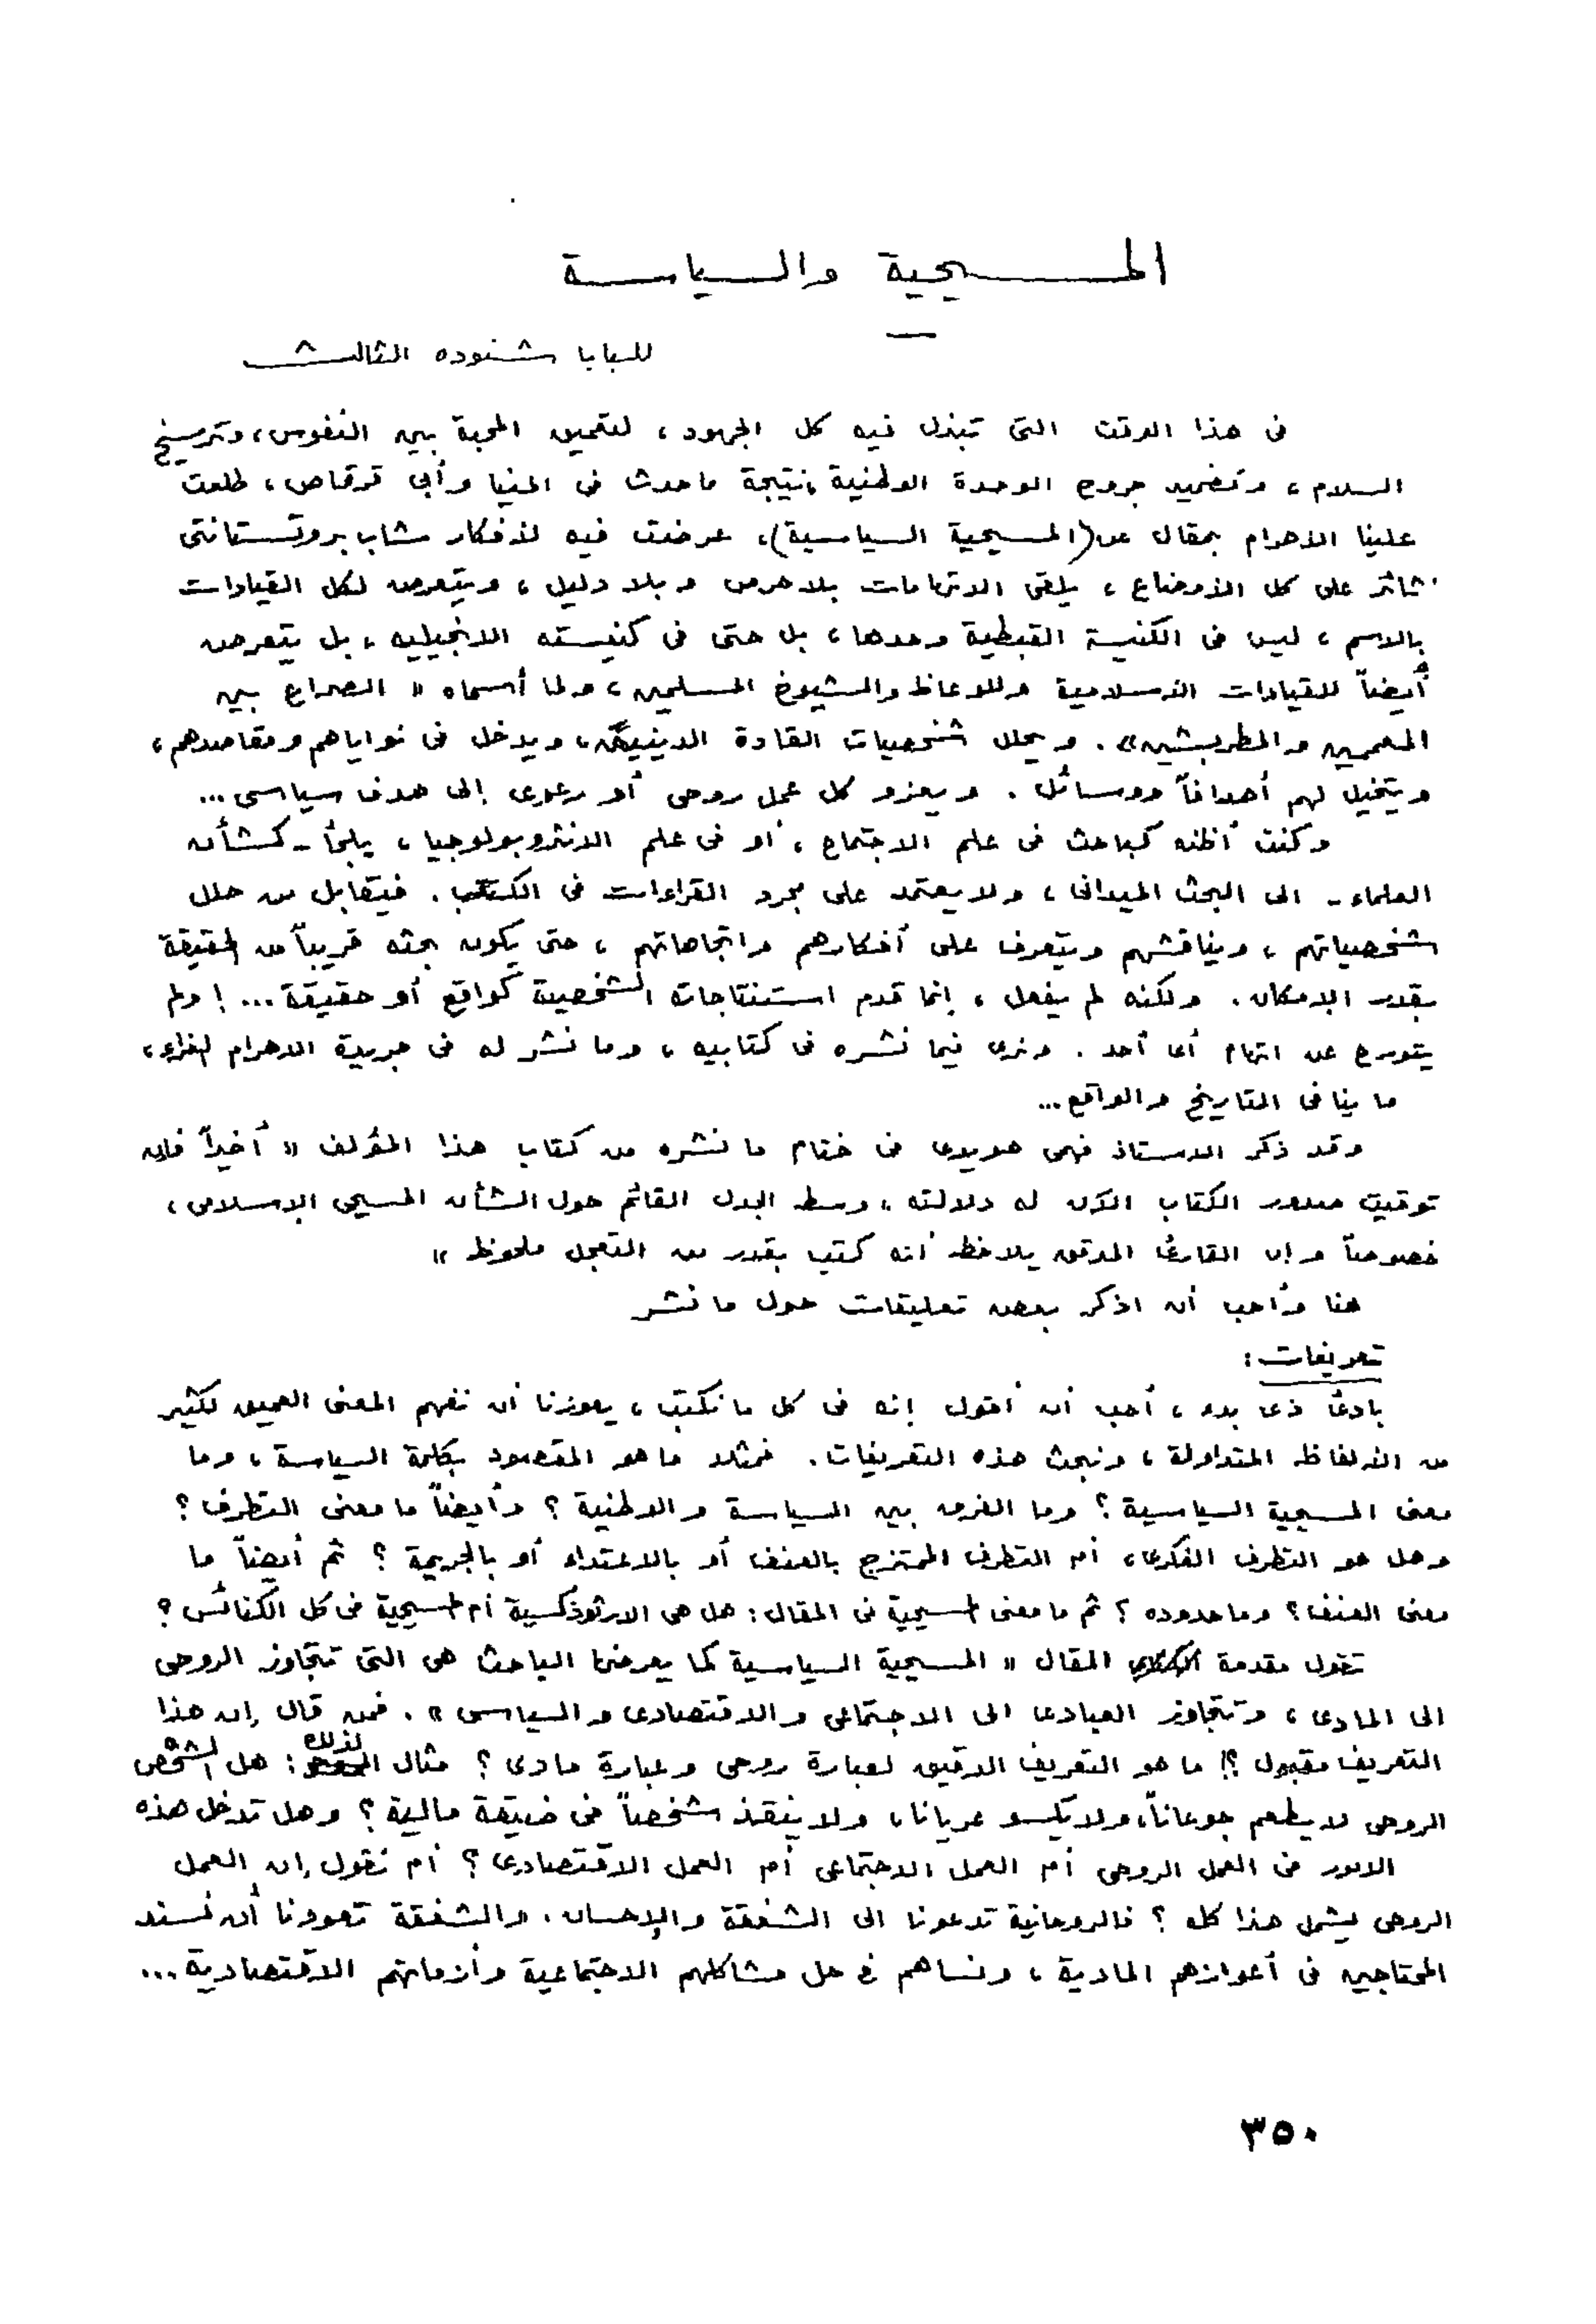 المسيحية والسياسة
للبابا شنوده الثالث
فى هذا الوقت التى تبذل فيه كل الجهود، لتعميق المحبة بين النفوس، وترسيخ
السلام، وتضميد جروح الوحدة الوطنية، نتيجة ما حدث فى المنيا وأبى قرقاص، طلعت
علينا الأهرام بمقال عن (المسيحية السياسية)، عرضت فيه لأفكار شاب بروتستانتى
ثائر على كل الأوضاع، يلقى الاتهامات بلا حرص وبلا دليل، ويتعرض لكل القيادات
بالاسم، ليس فى الكنيسة القبطية وحدها، بل حتى فى كنيسته الانجيليه، بل يتعرض
أيضاً للقيادات الأسلامية وللوعاظ والشيوخ المسلمين، ولما أسماه « الصراع بين
المعممين والمطربشين». ويحلل شخصيات القادة الدينيين، ويدخل فى نواياهم ومقاصدهم،
ويتخيل لهم أهدافاً ووسائل. ويعزو كل عمل روحى أو رعوى إلى هدف سياسى...
وكنت أظنه كباحث فى علم الاجتماع، أو فى علم الانثروبولوجيا، يلجأ - كشأن
العلماء - الى البحث الميدانى، ولا يعتمد على مجرد القراءات فى الكتب. فيتقابل من حلل
شخصياتهم، ويناقشهم ويتعرف على أفكارهم واتجاهاتهم، حتى يكون بحثه قريباً من الحقيقة
بقدر الإمكان. ولكنه لم يفعل، إنما قدم استنتاجاته الشخصية كواقع أو حقيقة...! ولم
يتورع عن اتهام أى أحد. ونرى فيما نشره فى كتابيه، وما نشر له فى جريدة الاهرام الغراء،
ما ينافى التاريخ والواقع...
وقد ذكر الاستاذ فهمى هويدى فى ختام ما نشره من كتاب هذا المؤلف « أخيراً فإن
توقيت صدور الكتاب الآن له دلالته، وسط الجدل القائم حول الشأن المسيحى الإسلامى،
خصوصاً وإن القارئ المدقق يلاحظ أنه كتب بقدر من التعجل ملحوظ »
هنا وأحب أن اذكر بعض تعليقات حول ما نشر
تعريفات :
بادئ ذى بدء، أحب أن أقول إنه فى كل ما نكتب، يعوزنا أن نفهم المعنى العميق لكثير
من الألفاظ المتداولة، ونبحث هذه التعريفات. فمثلا ما هو المقصود بكلمة السياسة، وما
معنى المسيحية السياسية؟ وما الفرق بين السياسة والوطنية؟ وأيضاً ما معنى التطرف؟
وهل هو التطرف الفكرى، أم التطرف الممتزج بالعنف أو بالاعتداء أو بالجريمة؟ ثم أيضاً ما
معنى العنف؟ وما حدوده؟ ثم ما معنى المسيحية فى المقال: هل هى الارثوذكسية أم المسيحية فى كل الكنائس؟
تقول مقدمة المقال « المسيحية السياسية كما يعرضها الباحث هى التى تتجاوز الروحى
الى المادى، وتتجاوز العبادى الى الاجتماعى والاقتصادى والسياسى ». فمن قال إن هذا
التعريف مقبول؟! ما هو التعريف الدقيق لعبارة روحى وعبارة مادى؟ مثال لذلك: هل الشخص
الروحى لا يطعم جوعاناً، ولا يكسو عريانا، ولا ينقذ شخصاً فى ضيقة مالية؟ وهل تدخل هذه
الامور فى العمل الروحى أم العمل الاجتماعى أم العمل الاقتصادى؟ أم نقول إن العمل
الروحى يشمل هذا كله؟ فالروحانية تدعونا الى الشفقة والإحسان. والشفقة تعودنا أن نسند
المحتاجين فى أعوازهم المادية، ونساهم فى حل مشاكلهم الاجتماعية وأزماتهم الاقتصادية...
٣٥٠